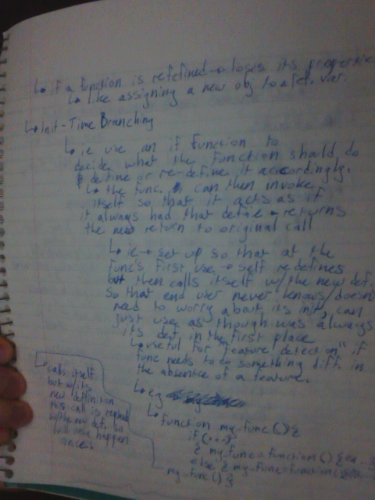 ↳ if a function is redefined → loses its propertie
↳ like assigning a new obj to a ref. var.
↳ Init-Time Branching
↳ ie use an if function to
decide what the function should do
& define or re-define it accordingly.
↳ the func. can then invoke
itself so that it acts as if
it always had that define → returns
the new return to original call
↳ ie → set up so that at the
func's first use → self redefines
but then calls itself w/the new def.
so that end user never knows/doesn't
need to worry about its init, can
just use as though was always
its def in the first place
↳ useful for "feature detection" if
func needs to do something diff. in
the absence of a feature.
↳ eg
↳ function my-func () {
if (...)
{ my-func = function () {
else { my-func = function (
my-func() }
↳ calls itself
but w/its
new definition
this call is
w/the new def. so
this once happen
once.